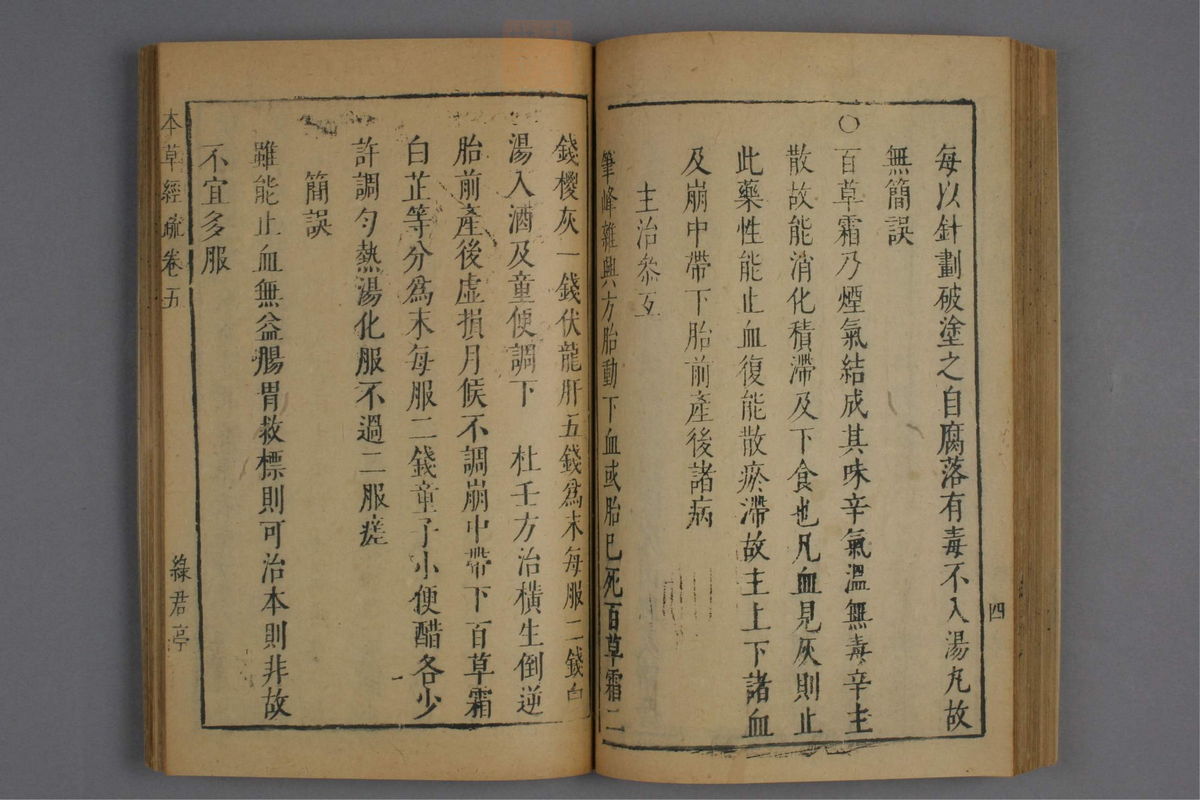 每以針劃破塗之自腐落有毒不入湯丸故
無簡誤
○百草霜乃煙氣結成其味辛氣溫無毒辛主
散故能消化積滯及下食也凡血見灰則止
此藥性能止血復能散瘀滯故主上下諸血
及崩中帶下胎前產後諸病
主治參互
筆峰雜興方胎動下血或胎已死百草霜二
四
錢椶灰一錢伏龍肝五錢爲末每服二錢白
湯入酒及童便調下 杜壬方治橫生倒逆
胎前產後虛損月候不調崩中帶下百草霜
白芷等分爲末每服二錢童子小便醋各少
許調勻熱湯化服不過二服瘥
簡誤
雖能止血無益腸胃救標則可治本則非故
不宜多服
本草經疏卷五
綠君亭